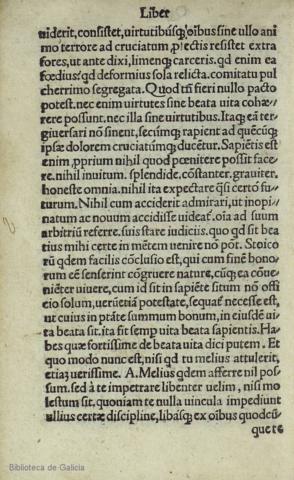 Liber
viderit, consistet, virtutibúsqꝫ oĩbus sine ullo ani
mo terrore ad cruciatum ꝓiectis resistet extra
fores, ut ante dixi, limenqꝫ carceris. qd enim ea
fœdius? qd deformius sola relicta. comitatu pul
cherrimo segregata. Quod tñ fieri nullo pacto
potest. nec enim virtutes sine beata vita cohæ
rere possunt. nec illa sine virtutibus. Itaqꝫ eã ter
giuersari nõ sinent, secúmqꝫ rapient ad quẽcũqꝫ
ipsæ dolorem cruciatũmqꝫ ducẽtur. Sapiẽtis est
enim, ꝓprium nihil quod pœnitere possit face
re. nihil inuitum. splendide, cõstanter. grauiter.
honeste omnia. nihil ita expectare qſi certo fu⸗
turum. Nihil cum acciderit admirari, ut inopi⸗
natum ac nouum accidisse uideat. oĩa ad suum
arbitriũ referre. suis stare iudiciis. quo qd sit bea
tius mihi certe in mẽtem uenire nõ põt. Stoico
rũ qdem facilis cõclusio est, qui cum finẽ bono⸗
rum eẽ senserint cõgruere naturæ, cũqꝫ ea cõue⸗
niẽter uiuere, cum id sit in sapiẽte situm nõ offi
cio solum, uerũetiã potestate, sequat necesse est,
ut cuius in ptáte summum bonum, in eiusdẽ ui⸗
ta beata sit. ita fit semꝑ uita beata sapientis. Ha⸗
bes quæ fortissime de beata uita dici putem. Et
quo modo nunc est, nisi qd tu melius attulerit,
etiaꝫ uerissime. A. Melius qdem afferre nil pos⸗
sum. sed à te impetrare libenter uelim, nisi mo
lestum sit, quoniam te nulla uincula impediunt
ullius certæ discipline, libásqꝫ ex oĩbus quodcũ⸗
que te
Biblioteca de Galicia